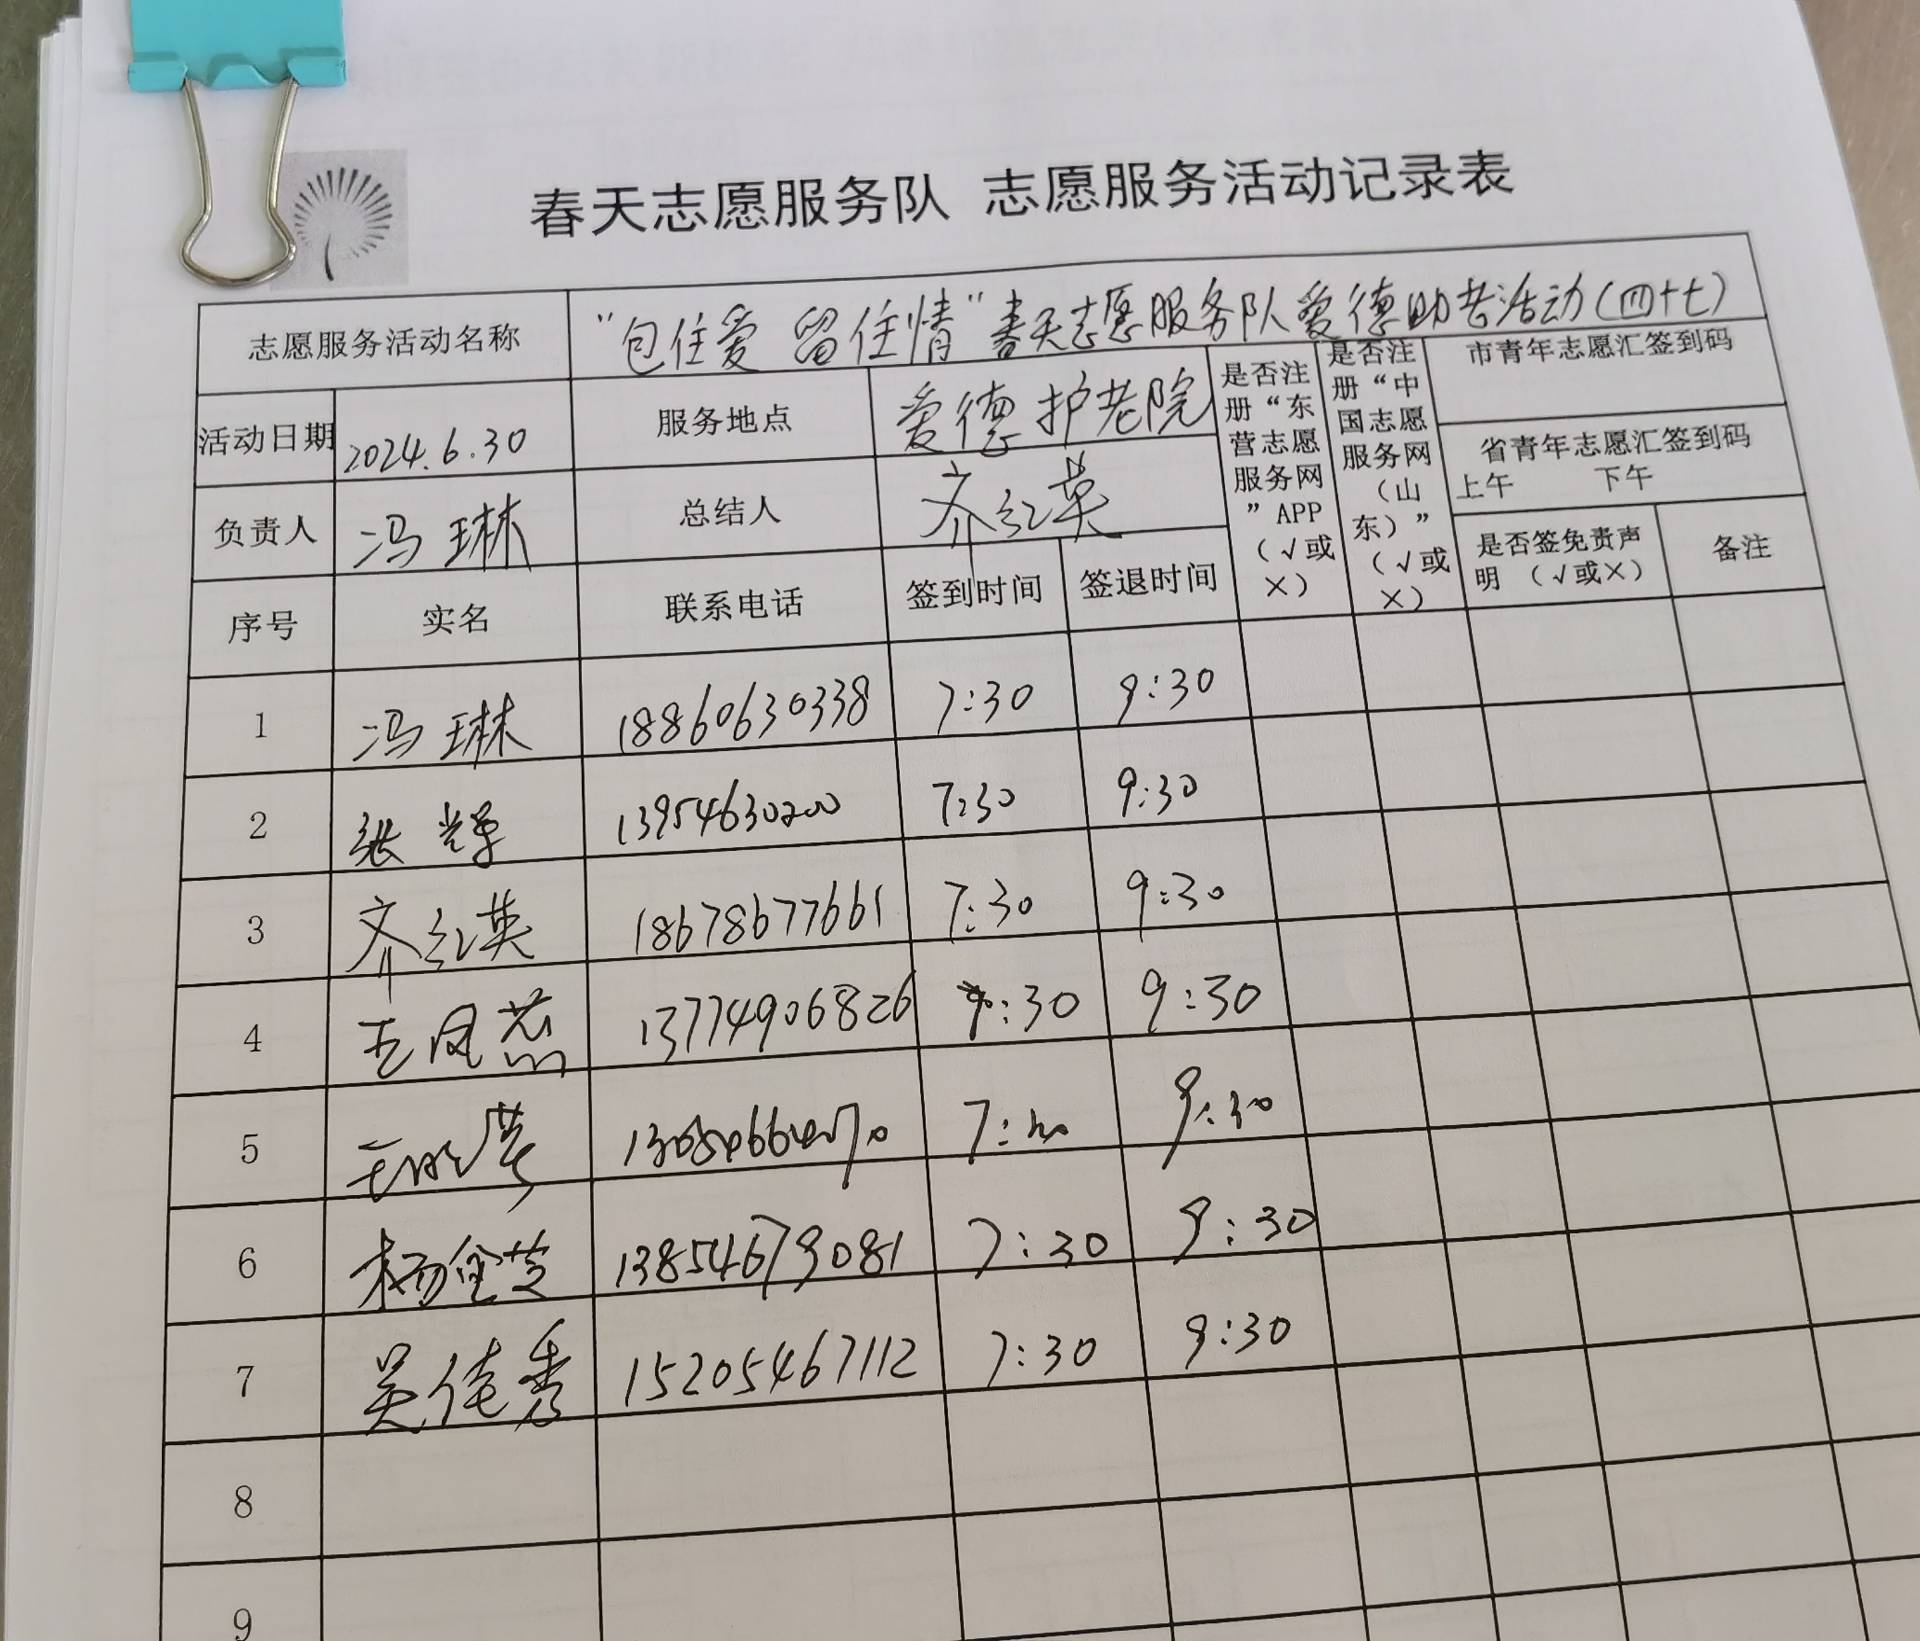 春天志愿服务队 志愿服务活动记录表
志愿服务活动名称 “包住爱 留住情”春天志愿服务队爱德助老活动(四十七)
活动日期 2024.6.30 服务地点 爱德护老院
负责人 冯琳 总结人 齐红英
是否注册“东营志愿服务网”APP（√或×）
是否注册“中国志愿服务网（山东）”（√或×）
市青年志愿汇签到码
省青年志愿汇签到码
上午 下午
是否签免责声明 （√或×） 备注
序号 实名 联系电话 签到时间 签退时间
1 冯琳 18860630338 7:30 9:30
2 张辉 13954630200 7:30 9:30
3 齐红英 18678677661 7:30 9:30
4 王风燕 13774906826 7:30 9:30
5 7:30 9:30
6 杨金芝 13854679081 7:30 9:30
7 吴佳秀 15205467112 7:30 9:30
8
9